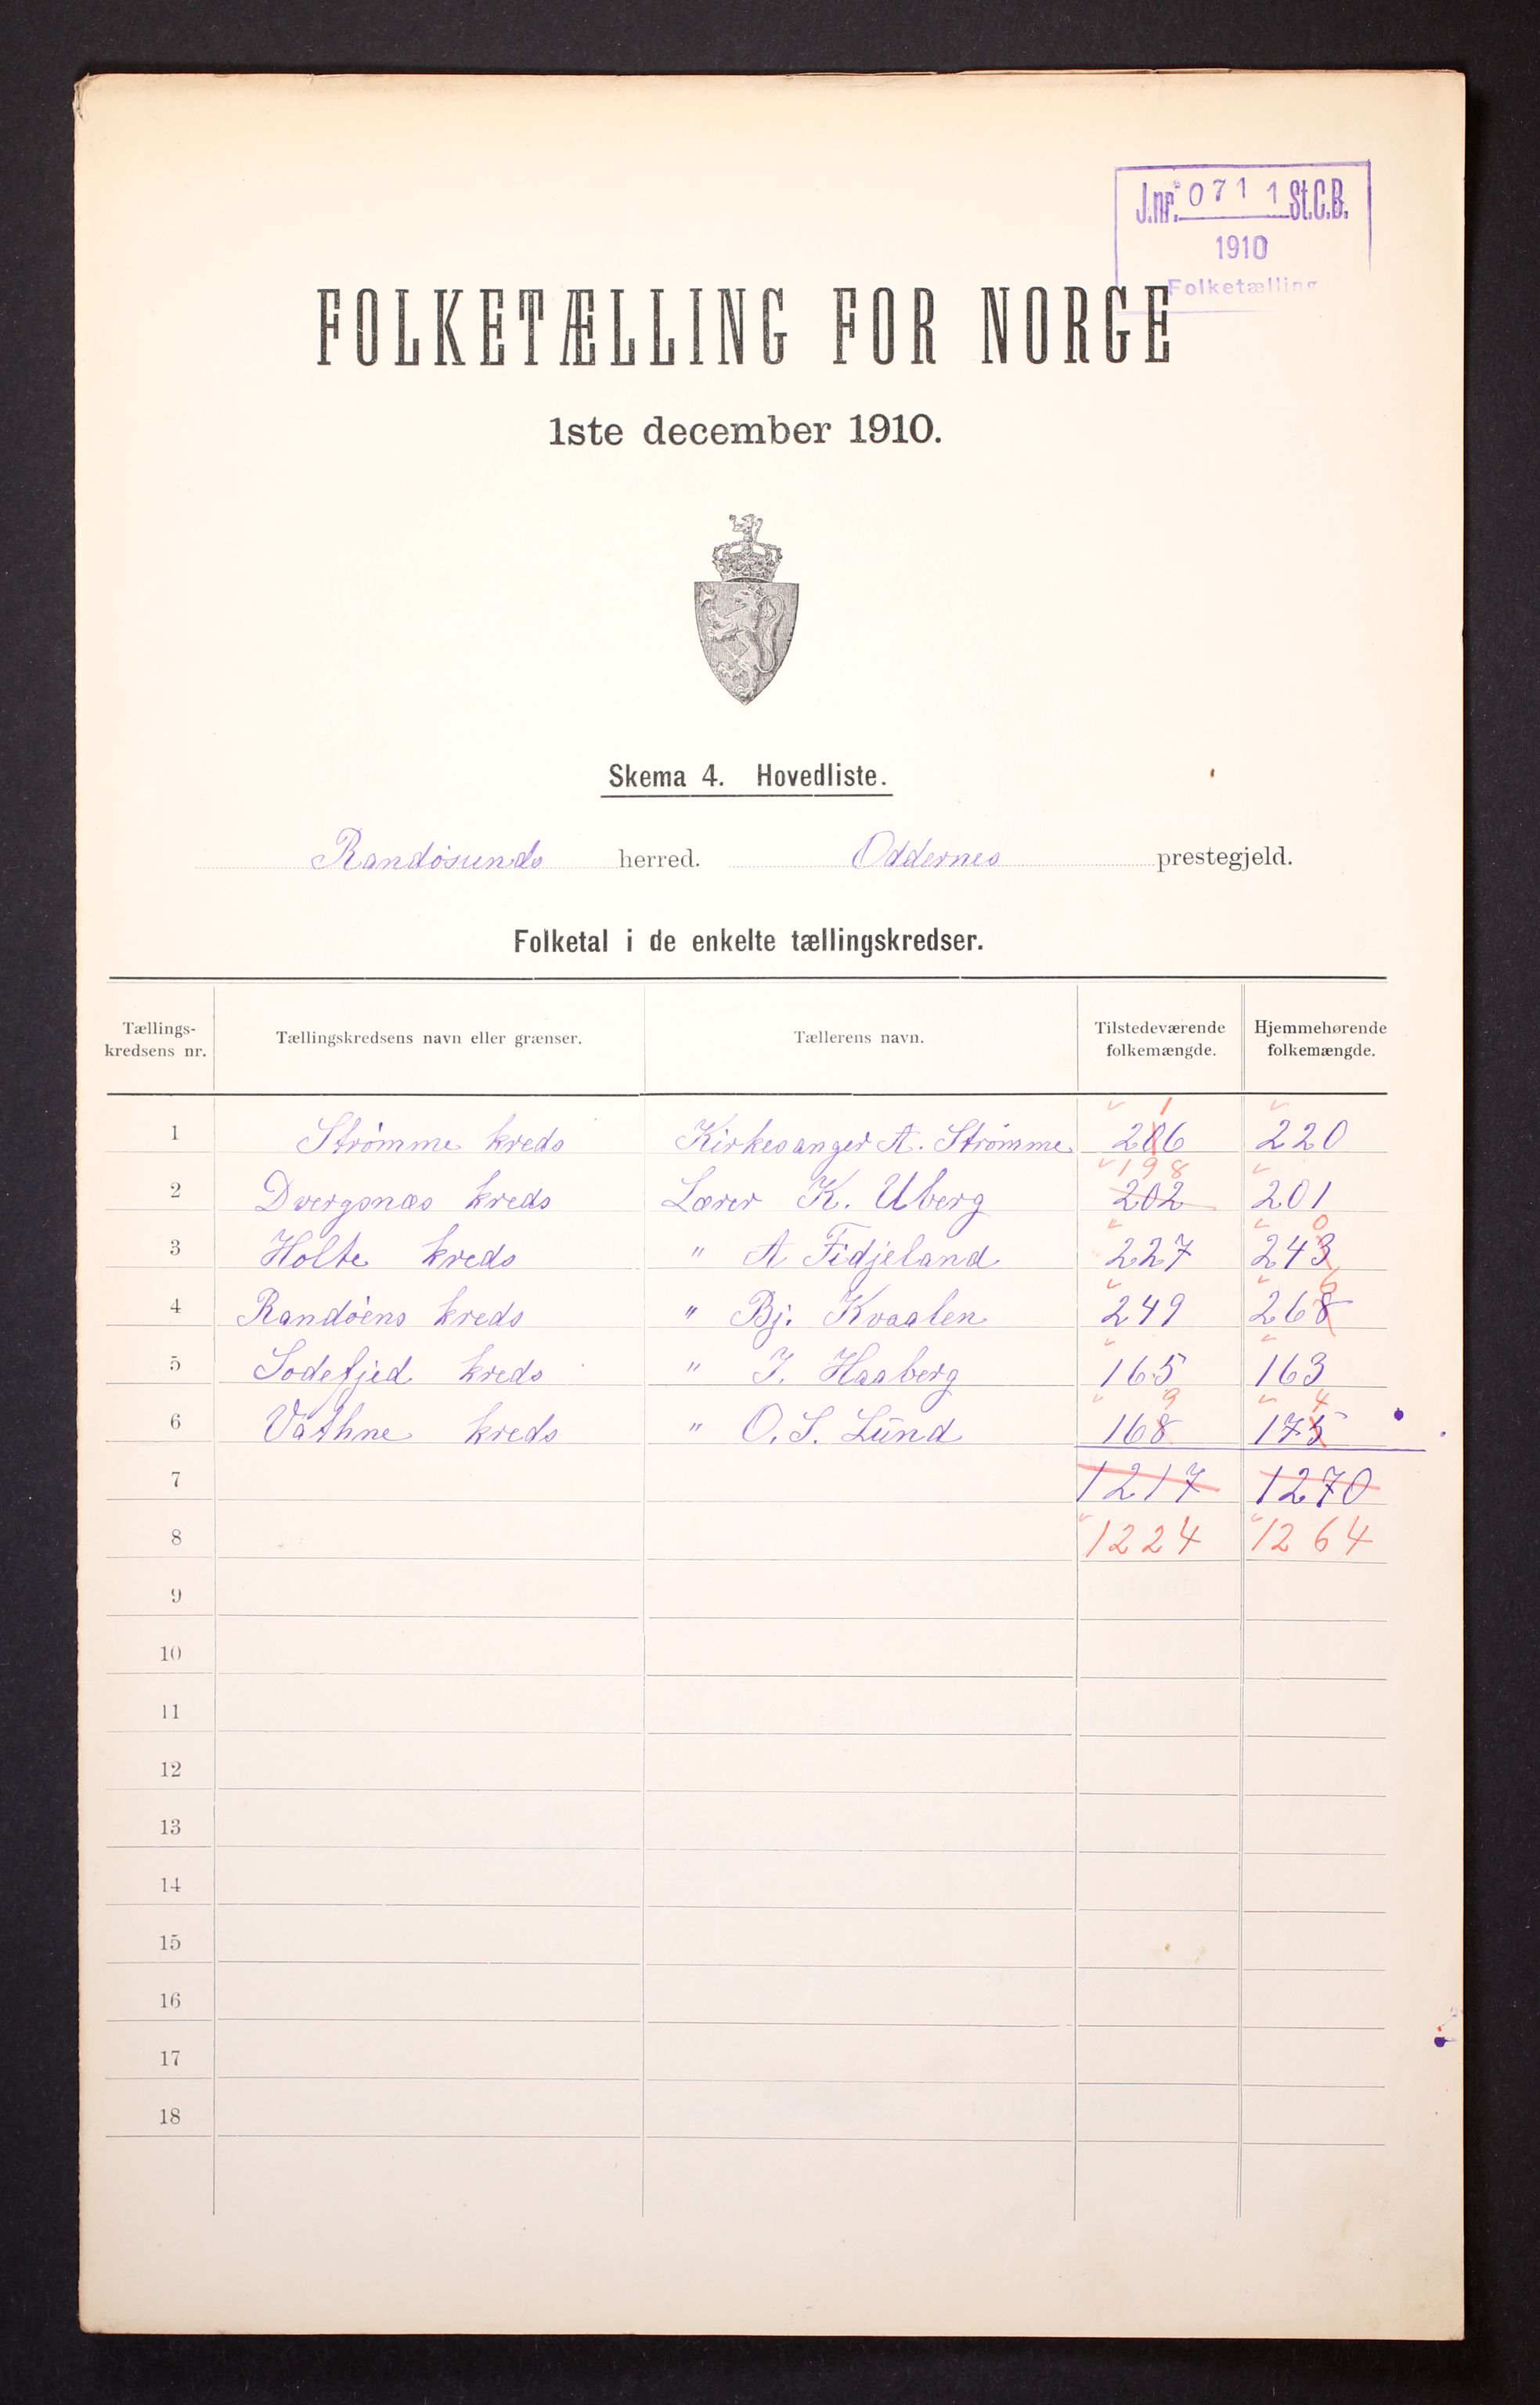 J.nr. 071 1 St.C.B.
1910
Folketælling
FOLKETÆLLING FOR NORGE
1ste december 1910.
Skema 4. Hovedliste.
Randøsunds herred. Oddernes prestegjeld.
Folketal i de enkelte tællingskredser.
Tællings-kredsens nr. Tællingskredsens navn eller grænser. Tællerens navn. Tilstedeværende folkemængde. Hjemmehørende folkemængde.
1
1 Strømme kreds Kirkesanger A. Strømme 206 220
198
2 Dvergsnæs kreds Lærer K. Uberg 202 201
0
3 Holte kreds " A Fidjeland 227 243
6
4 Randøens kreds " Bj. Kvaalen 249 268
5 Sodefjed kreds " I. Haaberg 165 163
9 4
6 Vathne kreds " O. S. Lund 168 175
7 1217 1270
8 1224 1264
9
10
11
12
13
14
15
16
17
18